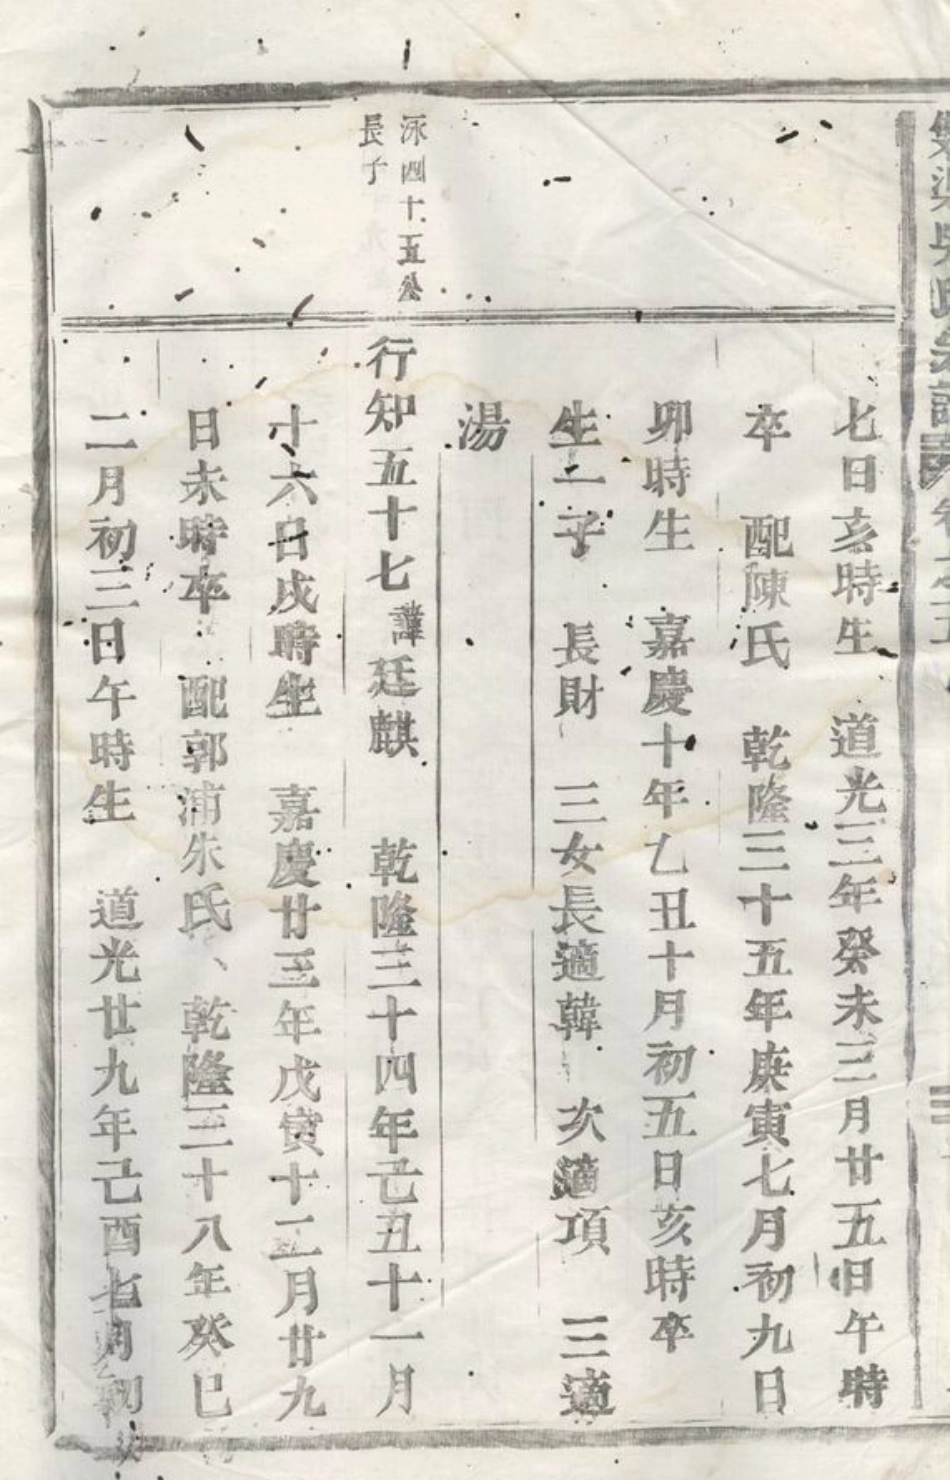 七日亥時生　道光三年癸未三月廿五日午時
卒　配陳氏　乾隆三十五年庚寅七月初九日
卯時生　嘉慶十年乙丑十月初五日亥時卒
生二子　長財　三女長適韓　次適項　三適
湯
泳四十五公
長子
行知五十七諱廷麒　乾隆三十四年己丑十一月
十六日戌時生　嘉慶廿三年戊寅十二月廿九
日未時卒　配郭浦朱氏、乾隆三十八年癸巳
二月初三日午時生　道光廿九年己酉七月初